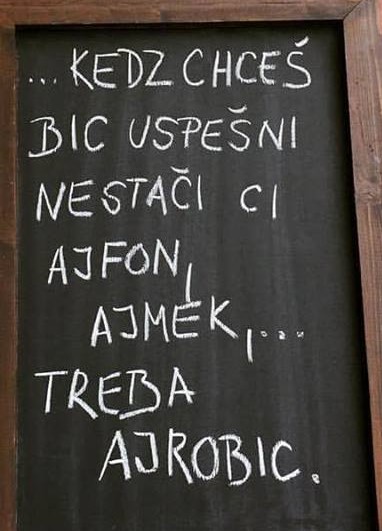 ...KEDZ CHCEŠ
BIC USPEŠNI
NESTAČI CI
AJFON,
AJMEK,...
TREBA
AJROBIC.